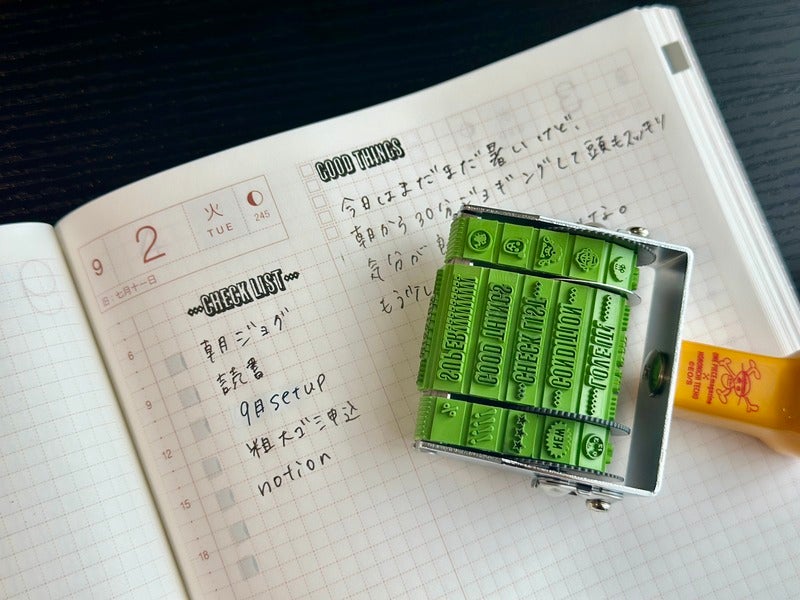 9
2
火
TUE
245
旧:七月十一日
CHECK LIST
6
9
12
15
18
朝ジョグ
読書
9月setup
粗大ゴミ申込
notion
GOOD THINGS
今日はまだまだ暑いけど、
朝から30分ジョギングして頭もスッキリ
気分が
もう少し
GOOD THINGS
CHECK LIST
CONDITION
MEM
ONE PIECE magazine
×
HOBONICHI TECHO